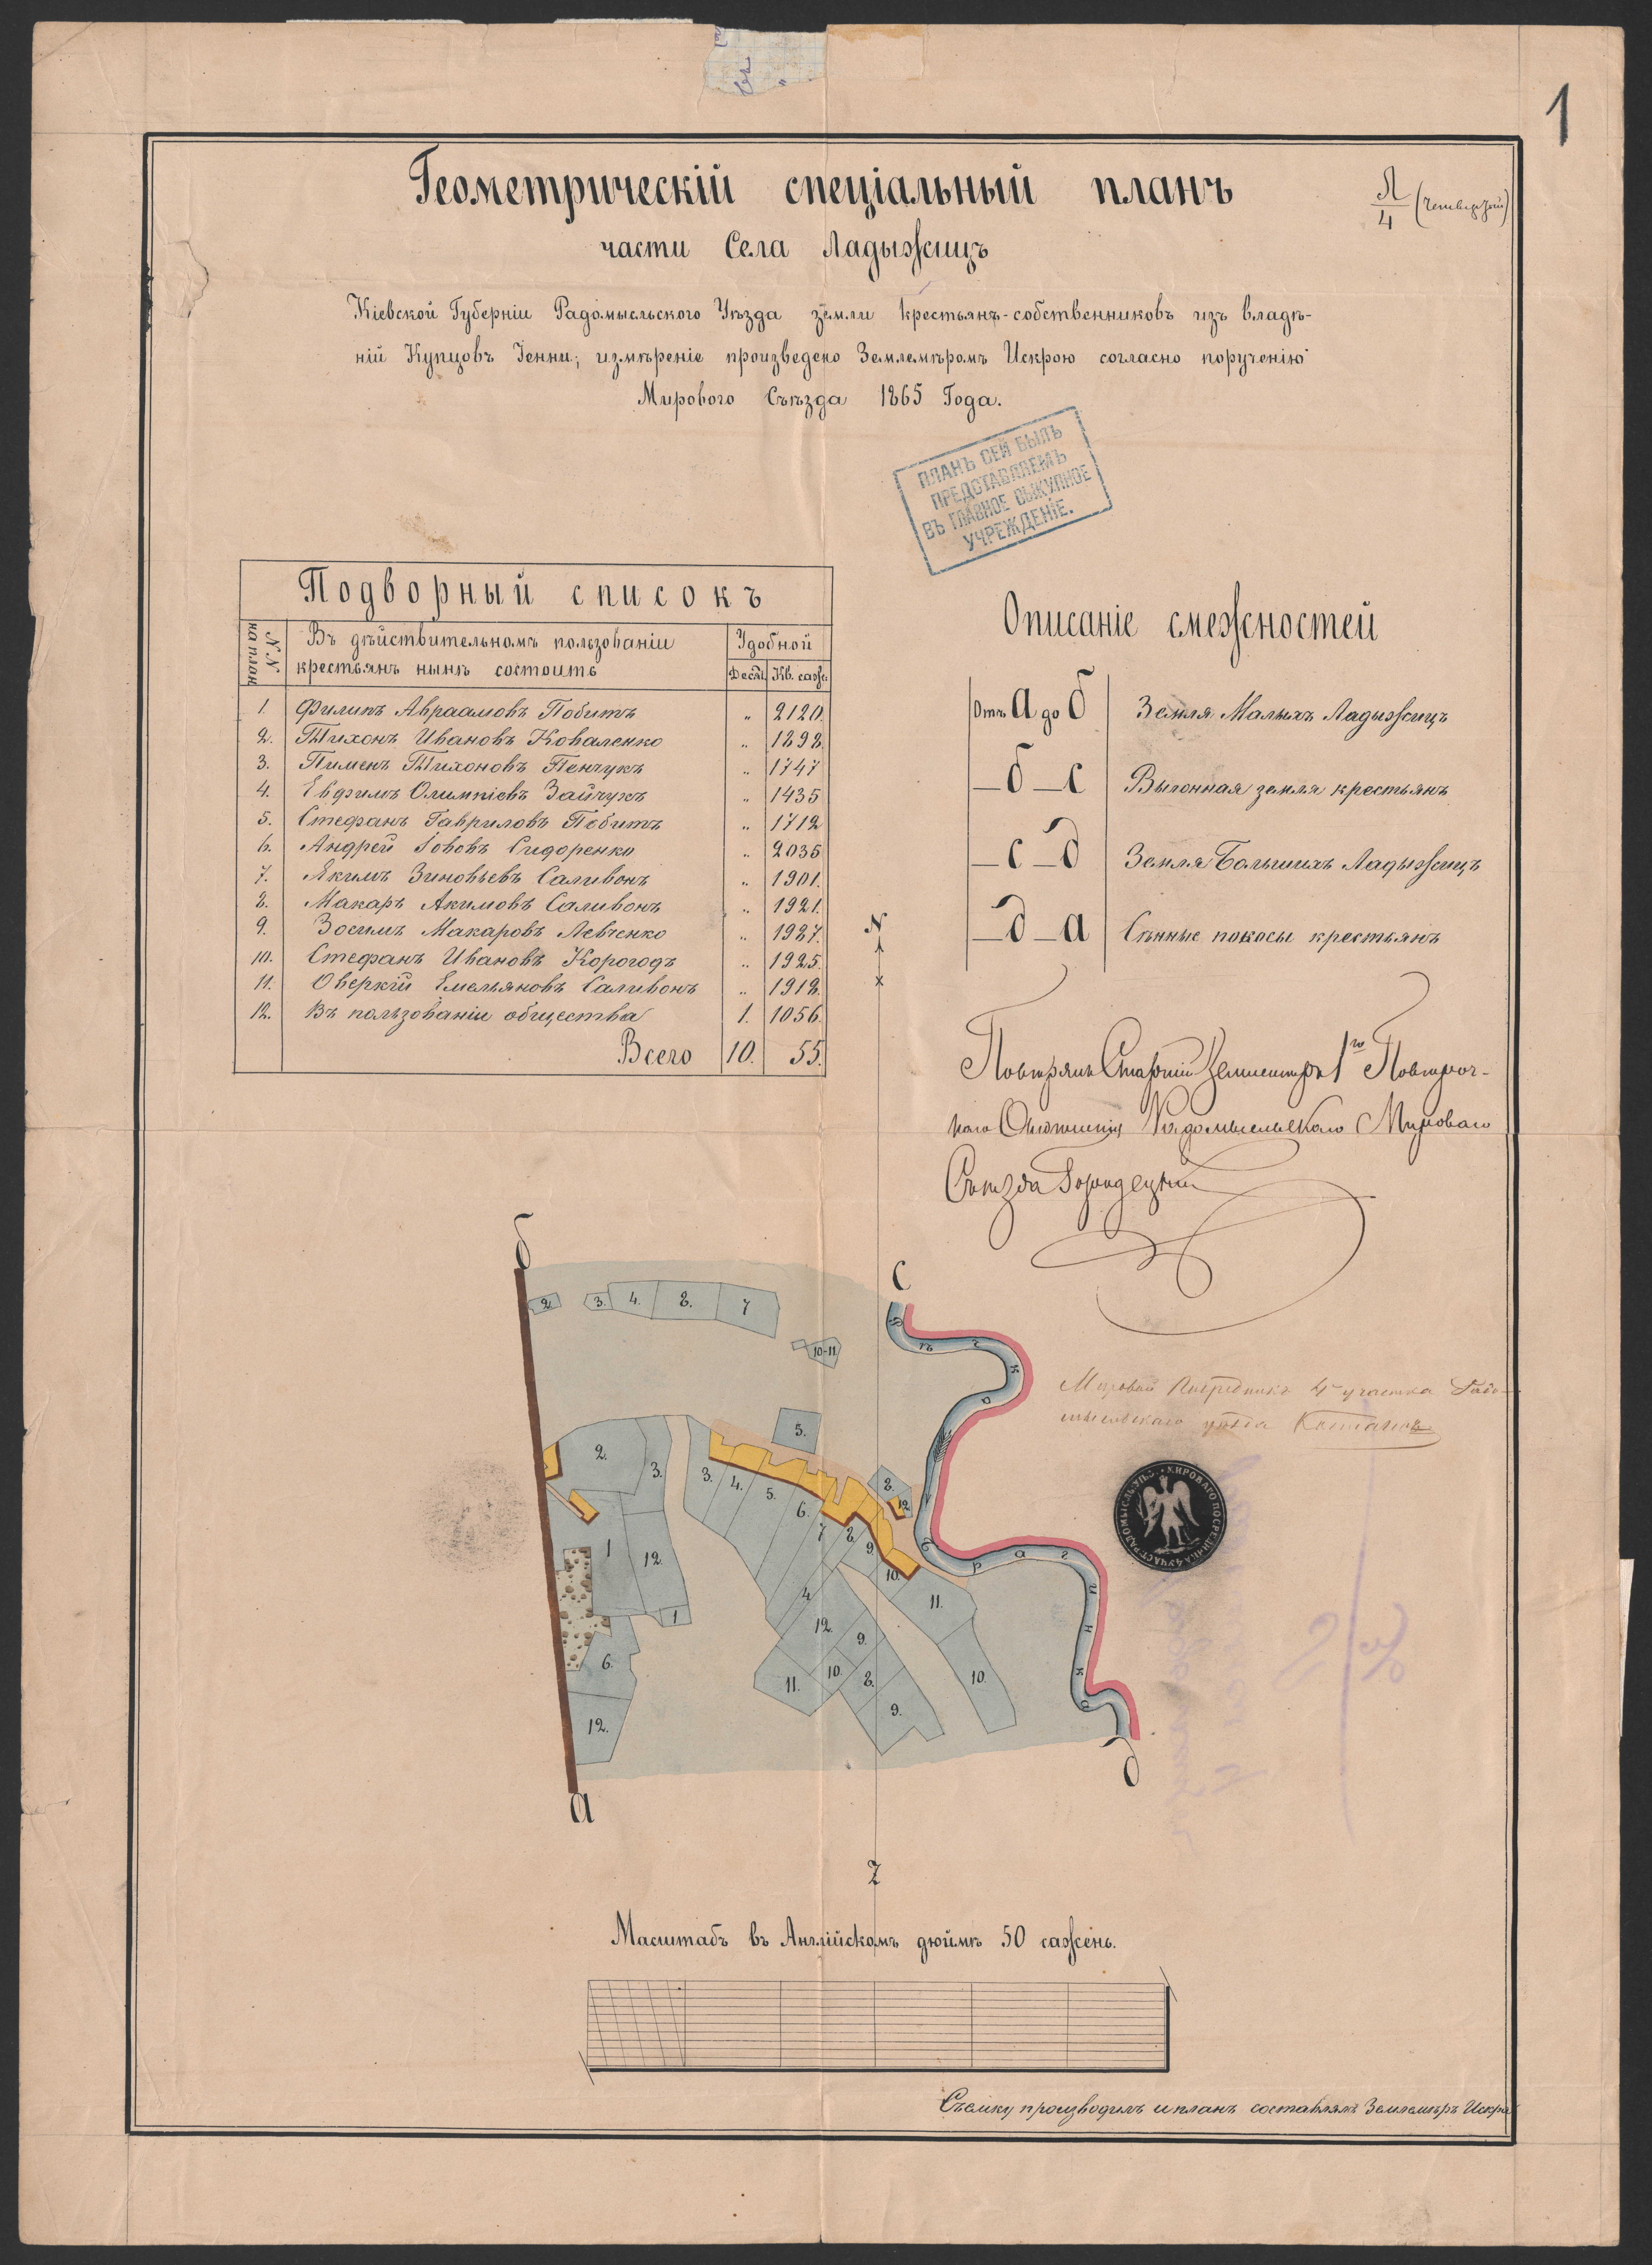 1
Л/4 (четвертый)
Геометрическій спеціальный планъ
части Села Ладыжицъ
Кіевской Губерніи Радомысльского Уѣзда земли крестьянъ-собственниковъ изъ владѣ-
ній Купцовъ Іенни; измѣреніе произведено Землемѣромъ Искрою согласно порученію
Мирового Съѣзда 1865 Года.
ПЛАНЪ СЕЙ БЫЛЪ
ПРЕДСТАВЛЯЕМЪ
ВЪ ГЛАВНОЕ ВЫКУПНОЕ
УЧРЕЖДЕНІЕ.
Подворный списокъ
№№ на планѣ
Въ дѣйствительномъ пользованіи
крестьянъ нынѣ состоитъ
Удобной
Десят. Кв. саж.
1. Филипъ Авраамовъ Побитъ „ 2120.
2. Тихонъ Ивановъ Коваленко „ 1898.
3. Пименъ Тихоновъ Пенчукъ „ 1747
4. Евфимъ Олимпіевъ Зайчукъ „ 1435
5. Стефанъ Гавриловъ Побитъ „ 1712
6. Андрей Іововъ Сидоренко „ 2035
7. Якимъ Зиновьевъ Саливонъ „ 1901.
8. Макаръ Акимовъ Саливонъ „ 1921.
9. Зосимъ Макаровъ Левченко „ 1987.
10. Стефанъ Ивановъ Корогодъ „ 1925.
11. Оверкій Емельяновъ Саливонъ „ 1918.
12. Въ пользованіи общества 1. 1056.
Всего 10. 55.
Описаніе смежностей
Отъ а до б Земля Малыхъ Ладыжицъ
— б — с Выгонная земля крестьянъ
— с — д Земля Большихъ Ладыжицъ
— д — а Сѣнные покосы крестьянъ
N
Повѣрялъ Старшій Землемѣръ 1го Повѣроч-
наго Отдѣленія Радомысльскаго Мироваго
Съѣзда Городецкій
б
с
2. 3. 4. 8. 7
10-11.
Рѣчка Брагинка
5.
2. 3. 3. 4. 5. 6. 7 8. 9. 10. 8. 12
1 12. 4 11.
1 12. 9.
6. 11. 10. 8. 10.
12. 9.
д
а
Мировой Посредникъ 4 участка Радо-
мысльскаго уѣзда
Z
Масштабъ въ Англійскомъ дюймѣ 50 сажень.
Съемку производилъ и планъ составлялъ Землемѣръ Искра